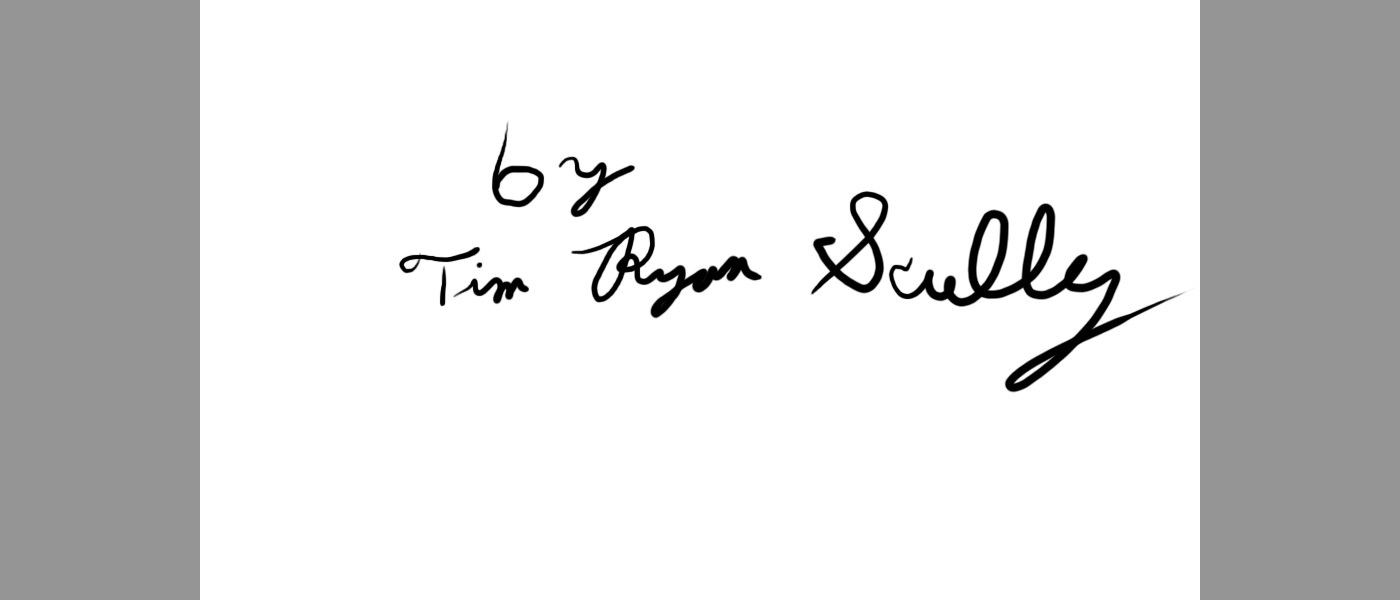 by
Tim Ryan Scully